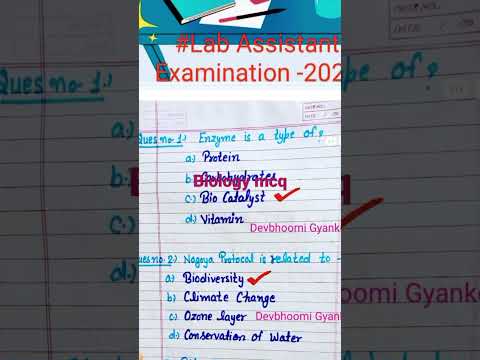 #Lab Assistant
Examination -202
Ques no 1:)
a:)
b:)
c:)
d:)
Ques no 1:) Enzyme is a type of?
a) Protein
b) Carbohydrates
Biology mcq
c:) Bio Catalyst ✓
d:) Vitamin
Devbhoomi Gyank
Ques no. 2:) Nagoya Protocal is related to -
a) Biodiversity ✓
b) Climate Change
c) Ozone layer
Devbhoomi Gyank
d) Conservation of Water
type of?
oomi Gyanke